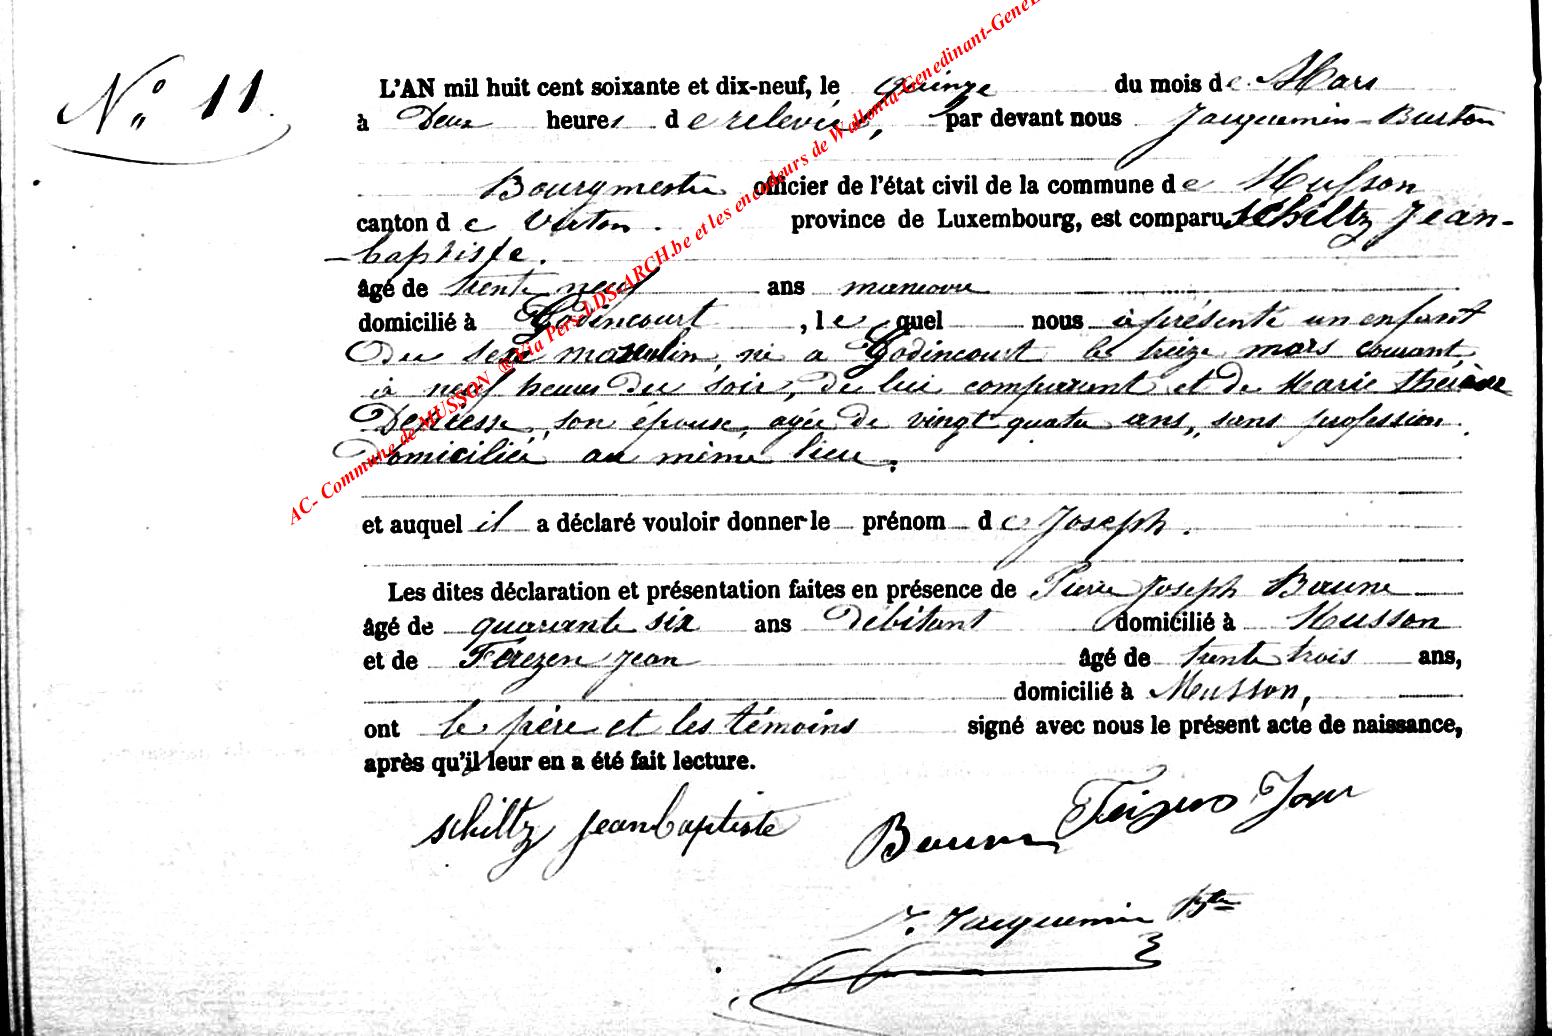 N° 11.
L'AN mil huit cent soixante et dix-neuf, le quinze du mois de Mars
à Deux heures de relevée, par devant nous Jacquemin-Burton
Bourgmestre officier de l'état civil de la commune de Musson
canton de Virton. province de Luxembourg, est comparu Schiltz Jean-
-baptiste.
âgé de trente neuf ans manoeuvre
domicilié à Godincourt, lequel nous a présenté un enfant
du sexe masculin, né à Godincourt le treize mars courant,
à neuf heures du soir, de lui comparant et de Marie Thérèse
son épouse, agée de vingt quatre ans, sans profession.
domiciliée au même lieu.
et auquel il a déclaré vouloir donner le prénom de Joseph.
Les dites déclaration et présentation faites en présence de Pierre Joseph Baune
âgé de quarante six ans Débitant domicilié à Musson
et de Jean âgé de trente trois ans,
domicilié à Musson,
ont le père et les témoins signé avec nous le présent acte de naissance,
après qu'il leur en a été fait lecture.
Schiltz jeanbaptiste
Jean
J. Jacquemin
AC- Commune de MUSSON ®Via Pers-LDS-ARCH.be et les encodeurs de Wallonia-Genedinant-GeneB